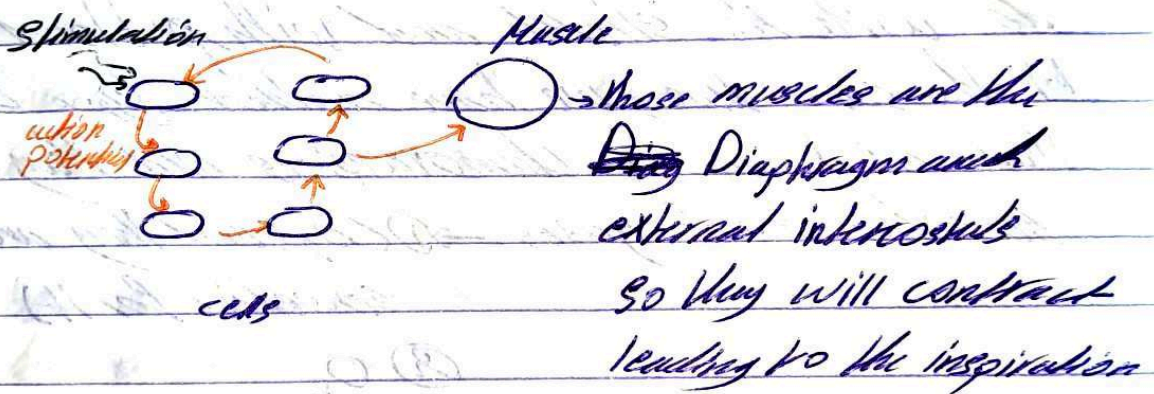 Stimulation
Muscle
action
potential
→ those muscles are the
Diaphragm and
external intercostals
so they will contract
leading to the inspiration
cells